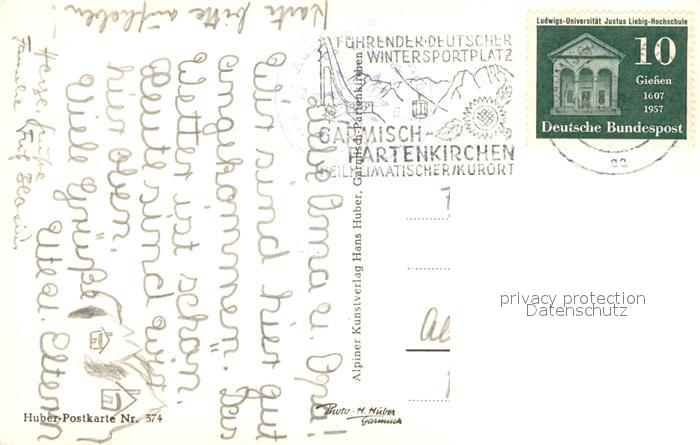 Karte bitte aufheben!
Liebe Oma u. Opa!
Wir sind hier gut
angekommen. Das
Wetter ist schön.
Heute sind wir
hier oben.
Viele Grüße
Eltern
Herzl. Grüße
Familie
Huber-Postkarte Nr. 374
Alpiner Kunstverlag Hans Huber, Garmisch-Partenkirchen
Photo-H. Huber
Garmisch
FÜHRENDER·DEUTSCHER
WINTERSPORTPLATZ
GARMISCH-
PARTENKIRCHEN
HEILKLIMATISCHER/KURORT
Ludwigs-Universität Justus Liebig-Hochschule
10
Gießen
1607
1957
Deutsche Bundespost
aa
privacy protection
Datenschutz